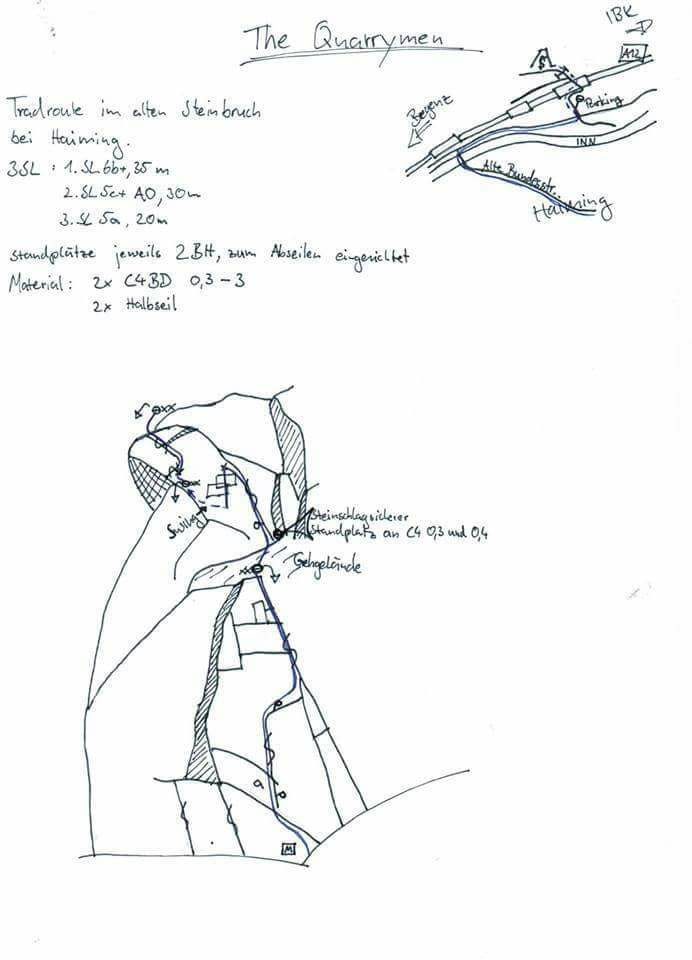 The Quarrymen
IBK
A12
Parking
Bregenz
INN
Alte Bundesstr.
Haiming
Tradroute im alten Steinbruch
bei Haiming.
3SL : 1. SL 6b+, 35 m
2. SL 5c+ A0, 30 m
3. SL 5a, 20 m
Standplätze jeweils 2BH, zum Abseilen eingerichtet
Material: 2x C4BD 0,3 - 3
2x Halbseil
xx
Swing
Steinschlagsicherer
Standplatz an C4 0,3 und 0,4
Gehgelände
xx
M